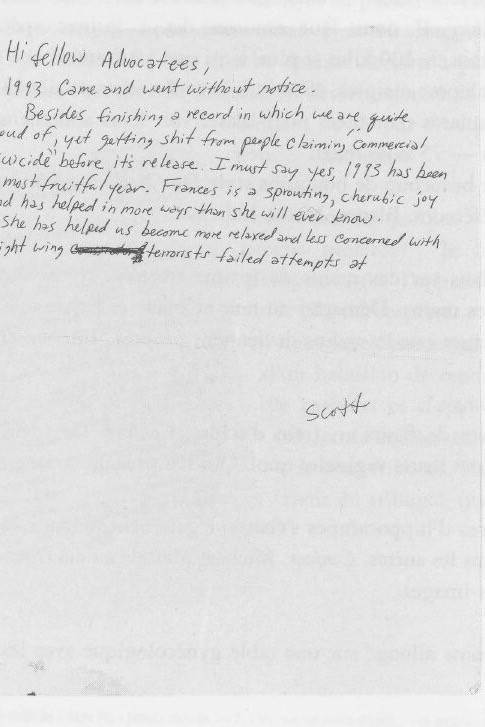 Hi fellow Advocatees,
1993 Came and went without notice.
Besides finishing a record in which we are quite
oud of, yet getting shit from people claiming "Commercial
uicide" before it's release. I must say yes, 1993 has been
most fruitful year. Frances is a sprouting, cherubic joy
nd has helped in more ways than she will ever know.
She has helped us become more relaxed and less concerned with
ight wing terrorists failed attempts at
Scott